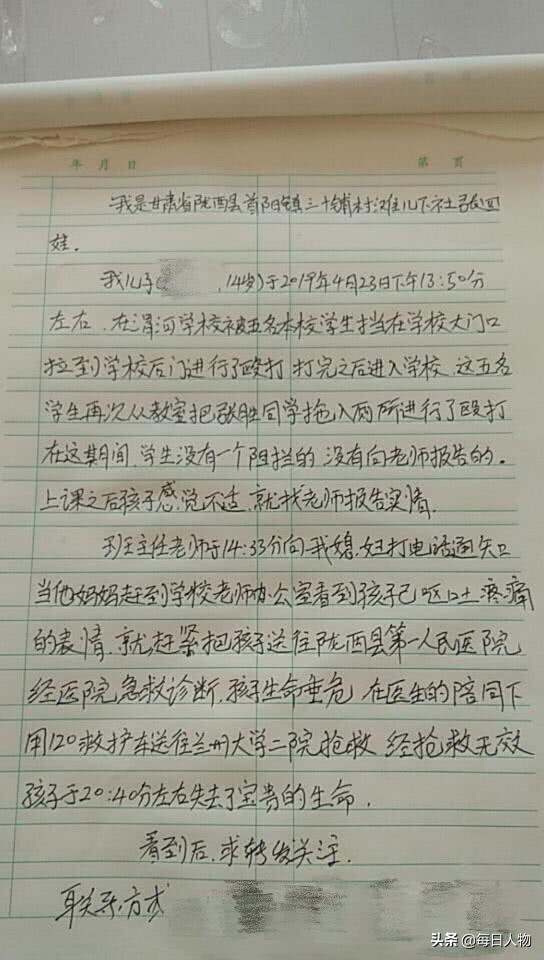 年 月 日 第 页
我是甘肃省陇西县首阳镇三十铺村滩儿下社张四
娃。
我儿子( ,14岁)于2019年4月23日下午13:50分
左右,在渭河学校被五名本校学生挡在学校大门口
拉到学校后门进行了殴打 打完之后进入学校,这五名
学生再次从教室把张胜同学拖入厕所进行了殴打
在这其间,学生没有一个阻拦的,没有向老师报告的。
上课之后孩子感觉不适,就找老师报告实情,
班主任老师于14:33分向我媳妇打电话通知
当他妈妈赶到学校老师办公室看到孩子已呕吐疼痛
的表情,就赶紧把孩子送往陇西县第一人民医院
经医院急救诊断,孩子生命垂危 在医生的陪同下
用120救护车送往兰州大学二院抢救 经抢救无效
孩子于20:40分左右失去了宝贵的生命,
看到后,求转发关注,
联系方式
头条 @每日人物